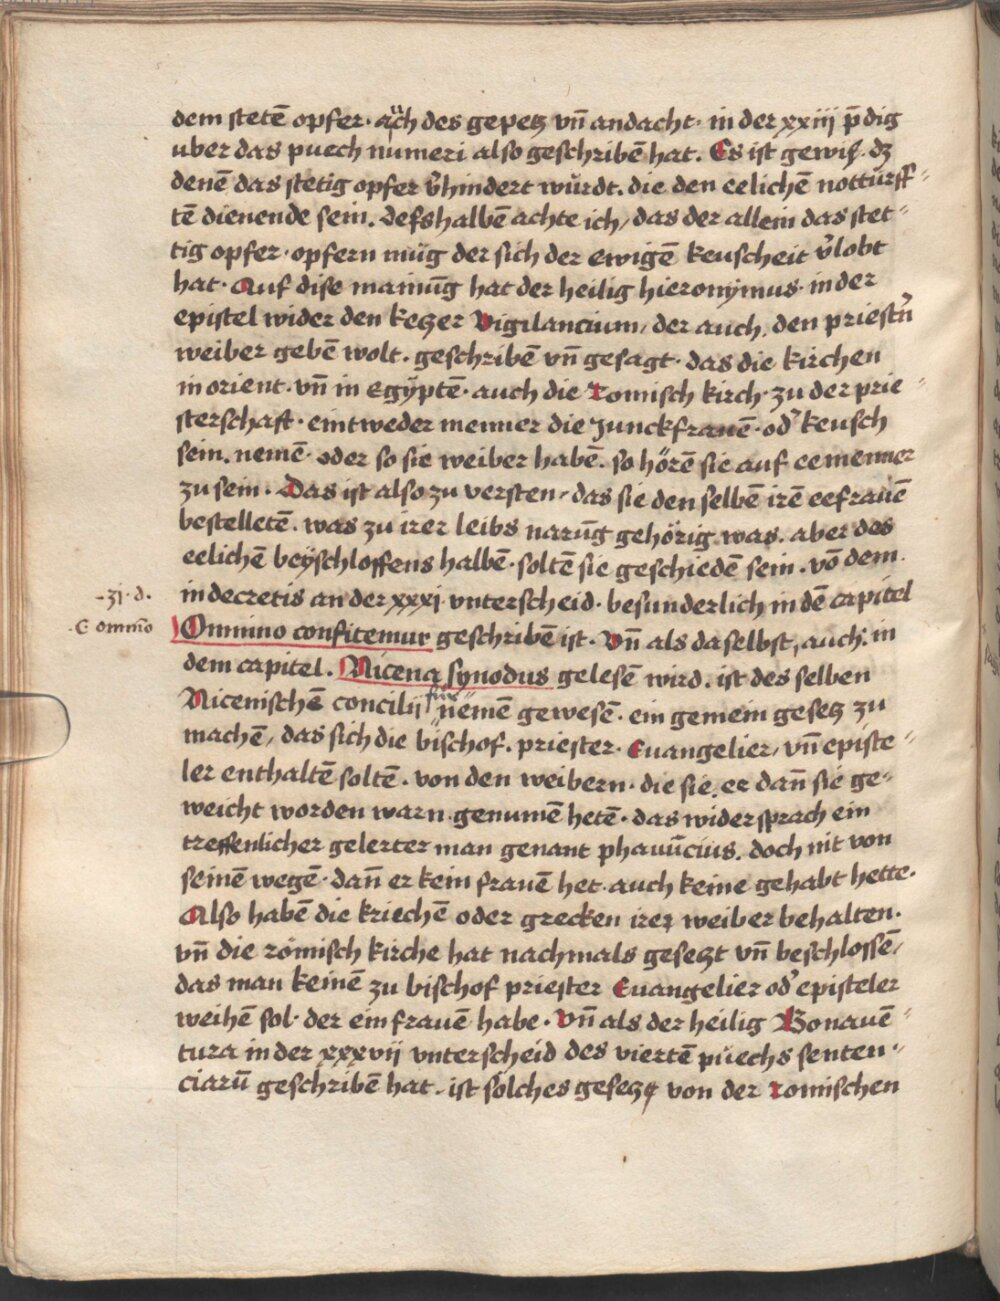 dem stetē opfer · aůch des gepetz vn̄ andacht · in der xxiij p̄dig
uber das puech numeri also geschribē hat. Es ist gewiß · dz
denē das stetig opfer v̉hindert wůrdt. die den eelichē nottůrff⸗
tē dienende sein. Desshalbē achte ich / das der allein das stet⸗
tig opfer · opfern můg der sich der ewigē keuscheit v̉lobt
hat · Auf dise mainūg hat der heilig hieronymus · in der
epistel wider den ketzer Vigilancium / der auch. den priestn̉
weiber gebē wolt · geschribē vn̄ gesagt · das die kirchen
in orient · vn̄ in egÿptē · auch die romisch kirch · zu der prie⸗
sterschaft · eintweder menner die Junckfrauē · od̉ keusch
sein. nemē · oder so sie weiber habē. so hörē sie auf eemenner
zu sein · Das ist also zu versten / das sie den selbē irē eefrauē
bestelletē. was zu irer leibs narūg gehörig was. aber des
eelichē beÿschloffens halbē · soltē sie geschiedē sein · vō dem
-31 · d.
in decretis an der xxxi vnterscheid · besunderlich in dē capitel
· C ommō
Omnino confitemur geschribē ist · Vn̄ als daselbst, auch: in
dem capitel. Nicena synodus gelesē wird. ist des selben
Nicenischē concilij für nemē gewesē · ein gemein gesetz zu
machē / das sich die bischof · priester · Euangelier / vn̄ episte⸗
ler enthaltē soltē · von den weibern · die sie, ee dan̄ sie ge⸗
weicht worden warn genumē hetē · das widersprach ein
treffenlicher gelerter man genant phavūcius. doch nit von
seinē wegē · dan̄ er kein frauē het · auch keine gehabt hette ·
Also habē die kriechē oder grecken irer weiber behalten ·
vn̄ die römisch kirche hat nachmals gesetzt vn̄ beschlossē /
das man keinē zu bischof priester Euangelier od̉ episteler
weihē sol · der ein frauē habe · Vn̄ als der heilig Bonauē⸗
tura in der xxxvij vnterscheid des viertē půechs senten⸗
ciarū geschribē hat · ist sölches gesetz von der romischen